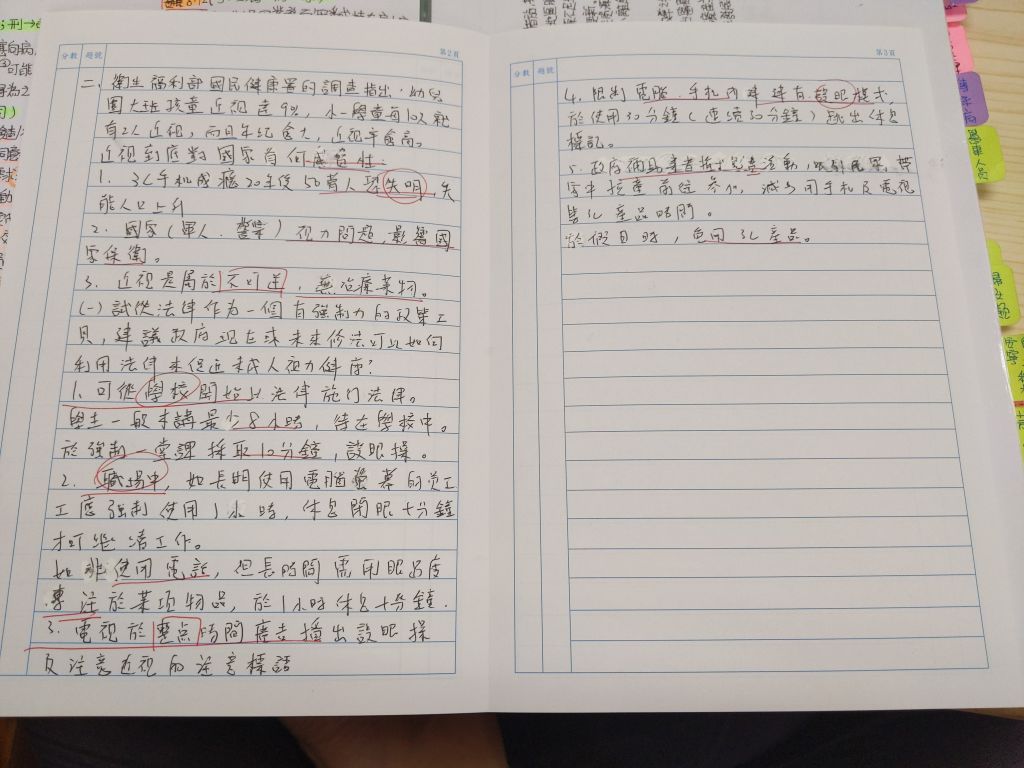 分數 題號 第2頁
二、衛生福利部國民健康署的調查指出,幼兒
園大班孩童近視達9%,小一學童每10人就
有2人近視,而且年紀愈大,近視率愈高。
近視到底對國家有何
1. 3C手機成癮20年後50萬人恐失明,失
能人口上升
2. 國家(軍人、警察)視力問題,影響國
家保衛。
3. 近視是屬於不可逆,無治療藥物。
(一)試從法律作為一個有強制力的政策工
具,建議政府現在或未來修法可以如何
利用法律來促進未成人視力健康?
1. 可從學校開始以法律施行法律。
學生一般來講最少8小時,待在學校中。
於強制一堂課採取10分鐘,設眼操。
2. 職場中,如長期使用電腦螢幕的員工
工應強制使用1小時,休息閉眼十分鐘
才可繼續工作。
如非使用電話,但長時間需用眼
專注於某項物品,於1小時休息十分鐘.
3. 電視於整点時間廣告播出設眼操
及注意近視的注意標語
分數 題號 第3頁
4. 電腦、手機內建 護眼模式,
於使用30分鐘(連續30分鐘)跳出休息
標記。
5. 政府補助業者 活動,
前往參加,減少用手机及電視
等 產品時間。
於假日時, 用3C產品。
學車人員